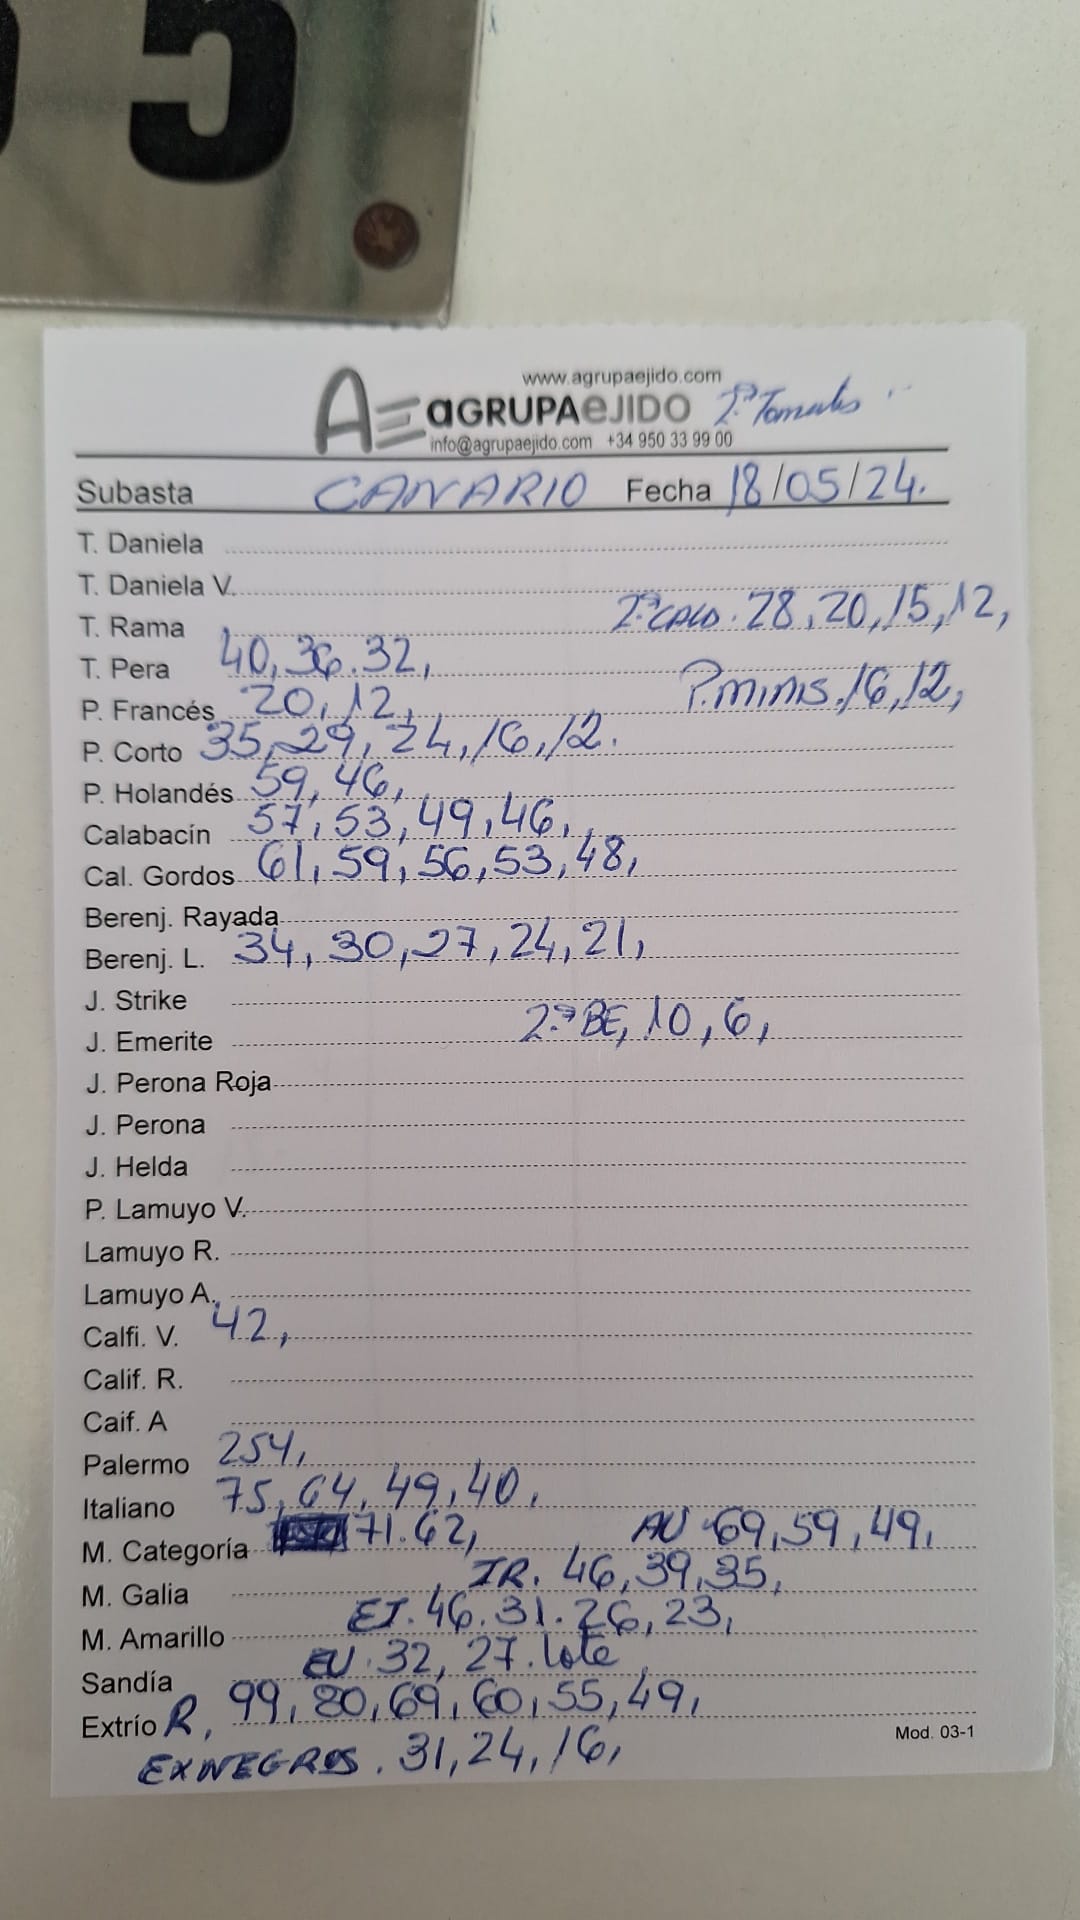 5
www.agrupaejido.com
AGRUPAEJIDO 2ª Tomates
info@agrupaejido.com +34 950 33 99 00
Subasta CANARIO Fecha 18/05/24.
T. Daniela
T. Daniela V.
T. Rama 2ª CALD. 28, 20, 15, 12,
T. Pera 40, 36. 32,
P. Francés 20, 12, P. minis. 16, 12,
P. Corto 35, 29, 24, 16, 12.
P. Holandés 59, 46,
Calabacín 57, 53, 49, 46,
Cal. Gordos 61, 59, 56, 53, 48,
Berenj. Rayada
Berenj. L. 34, 30, 27, 24, 21,
J. Strike
J. Emerite 2ª BE, 10, 6,
J. Perona Roja
J. Perona
J. Helda
P. Lamuyo V.
Lamuyo R.
Lamuyo A.
Calfi. V. 42,
Calif. R.
Caif. A
Palermo 254,
Italiano 75, 64, 49, 40,
M. Categoría 71. 62, AU. 69, 59, 49,
M. Galia IR. 46, 39, 35,
M. Amarillo EI. 46. 31. 26, 23,
Sandía EU. 32, 27. lote
Extrío R, 99, 80, 69, 60, 55, 49,
Mod. 03-1
EXNEGROS. 31, 24, 16,